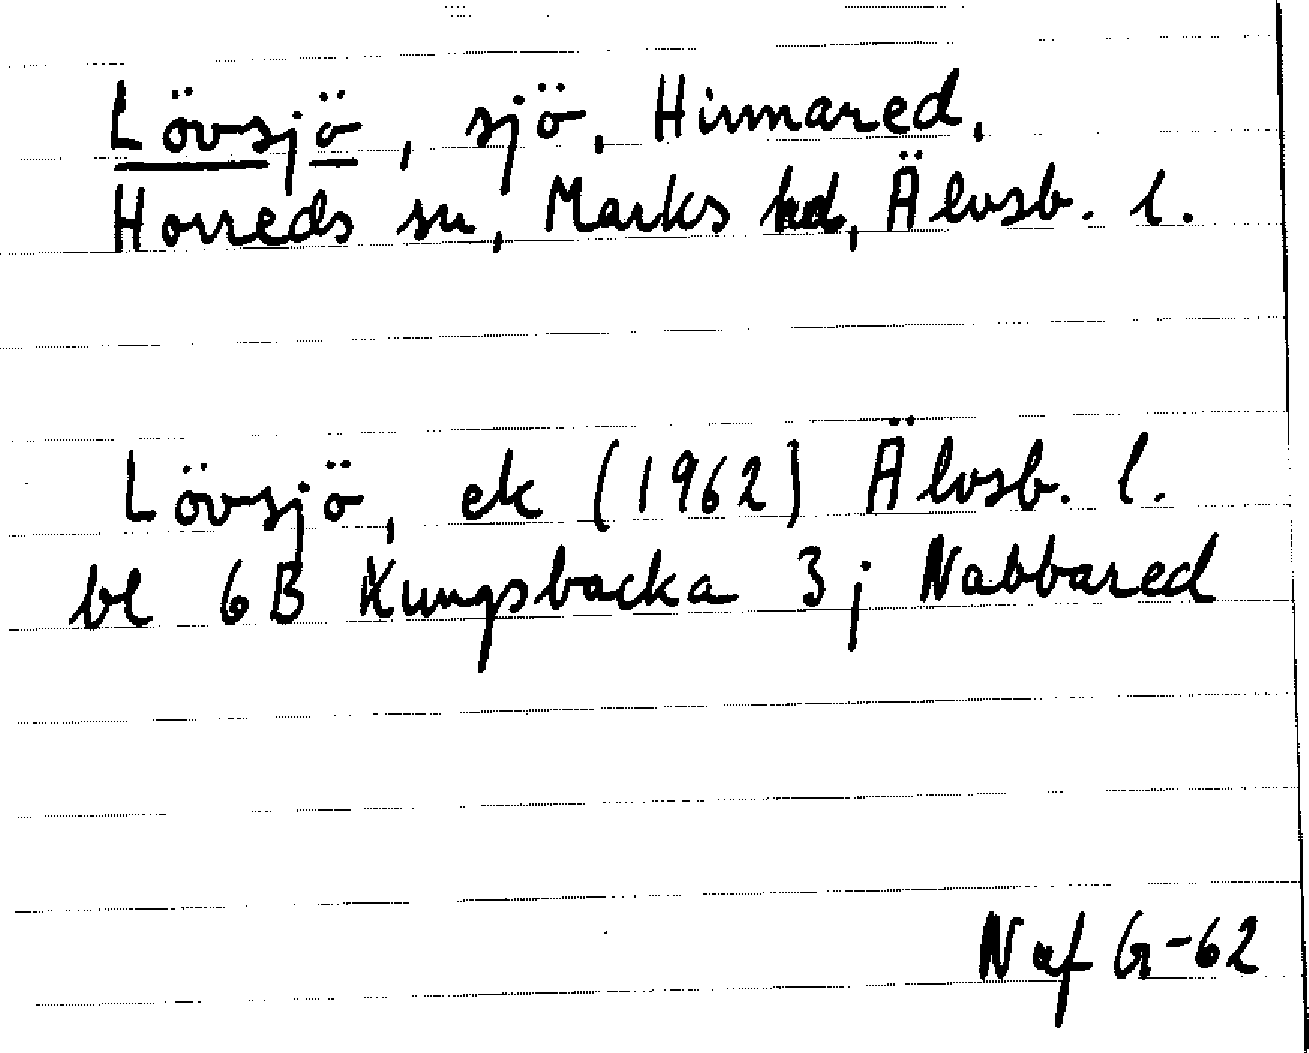 Lövsjö, sjö, Hinnared,
Horreds sn, Marks hd, Älvsb. l.
Lövsjö, ek (1962) Älvsb. l.
bl 6B Kungsbacka 3j Nabbared
N af G-62